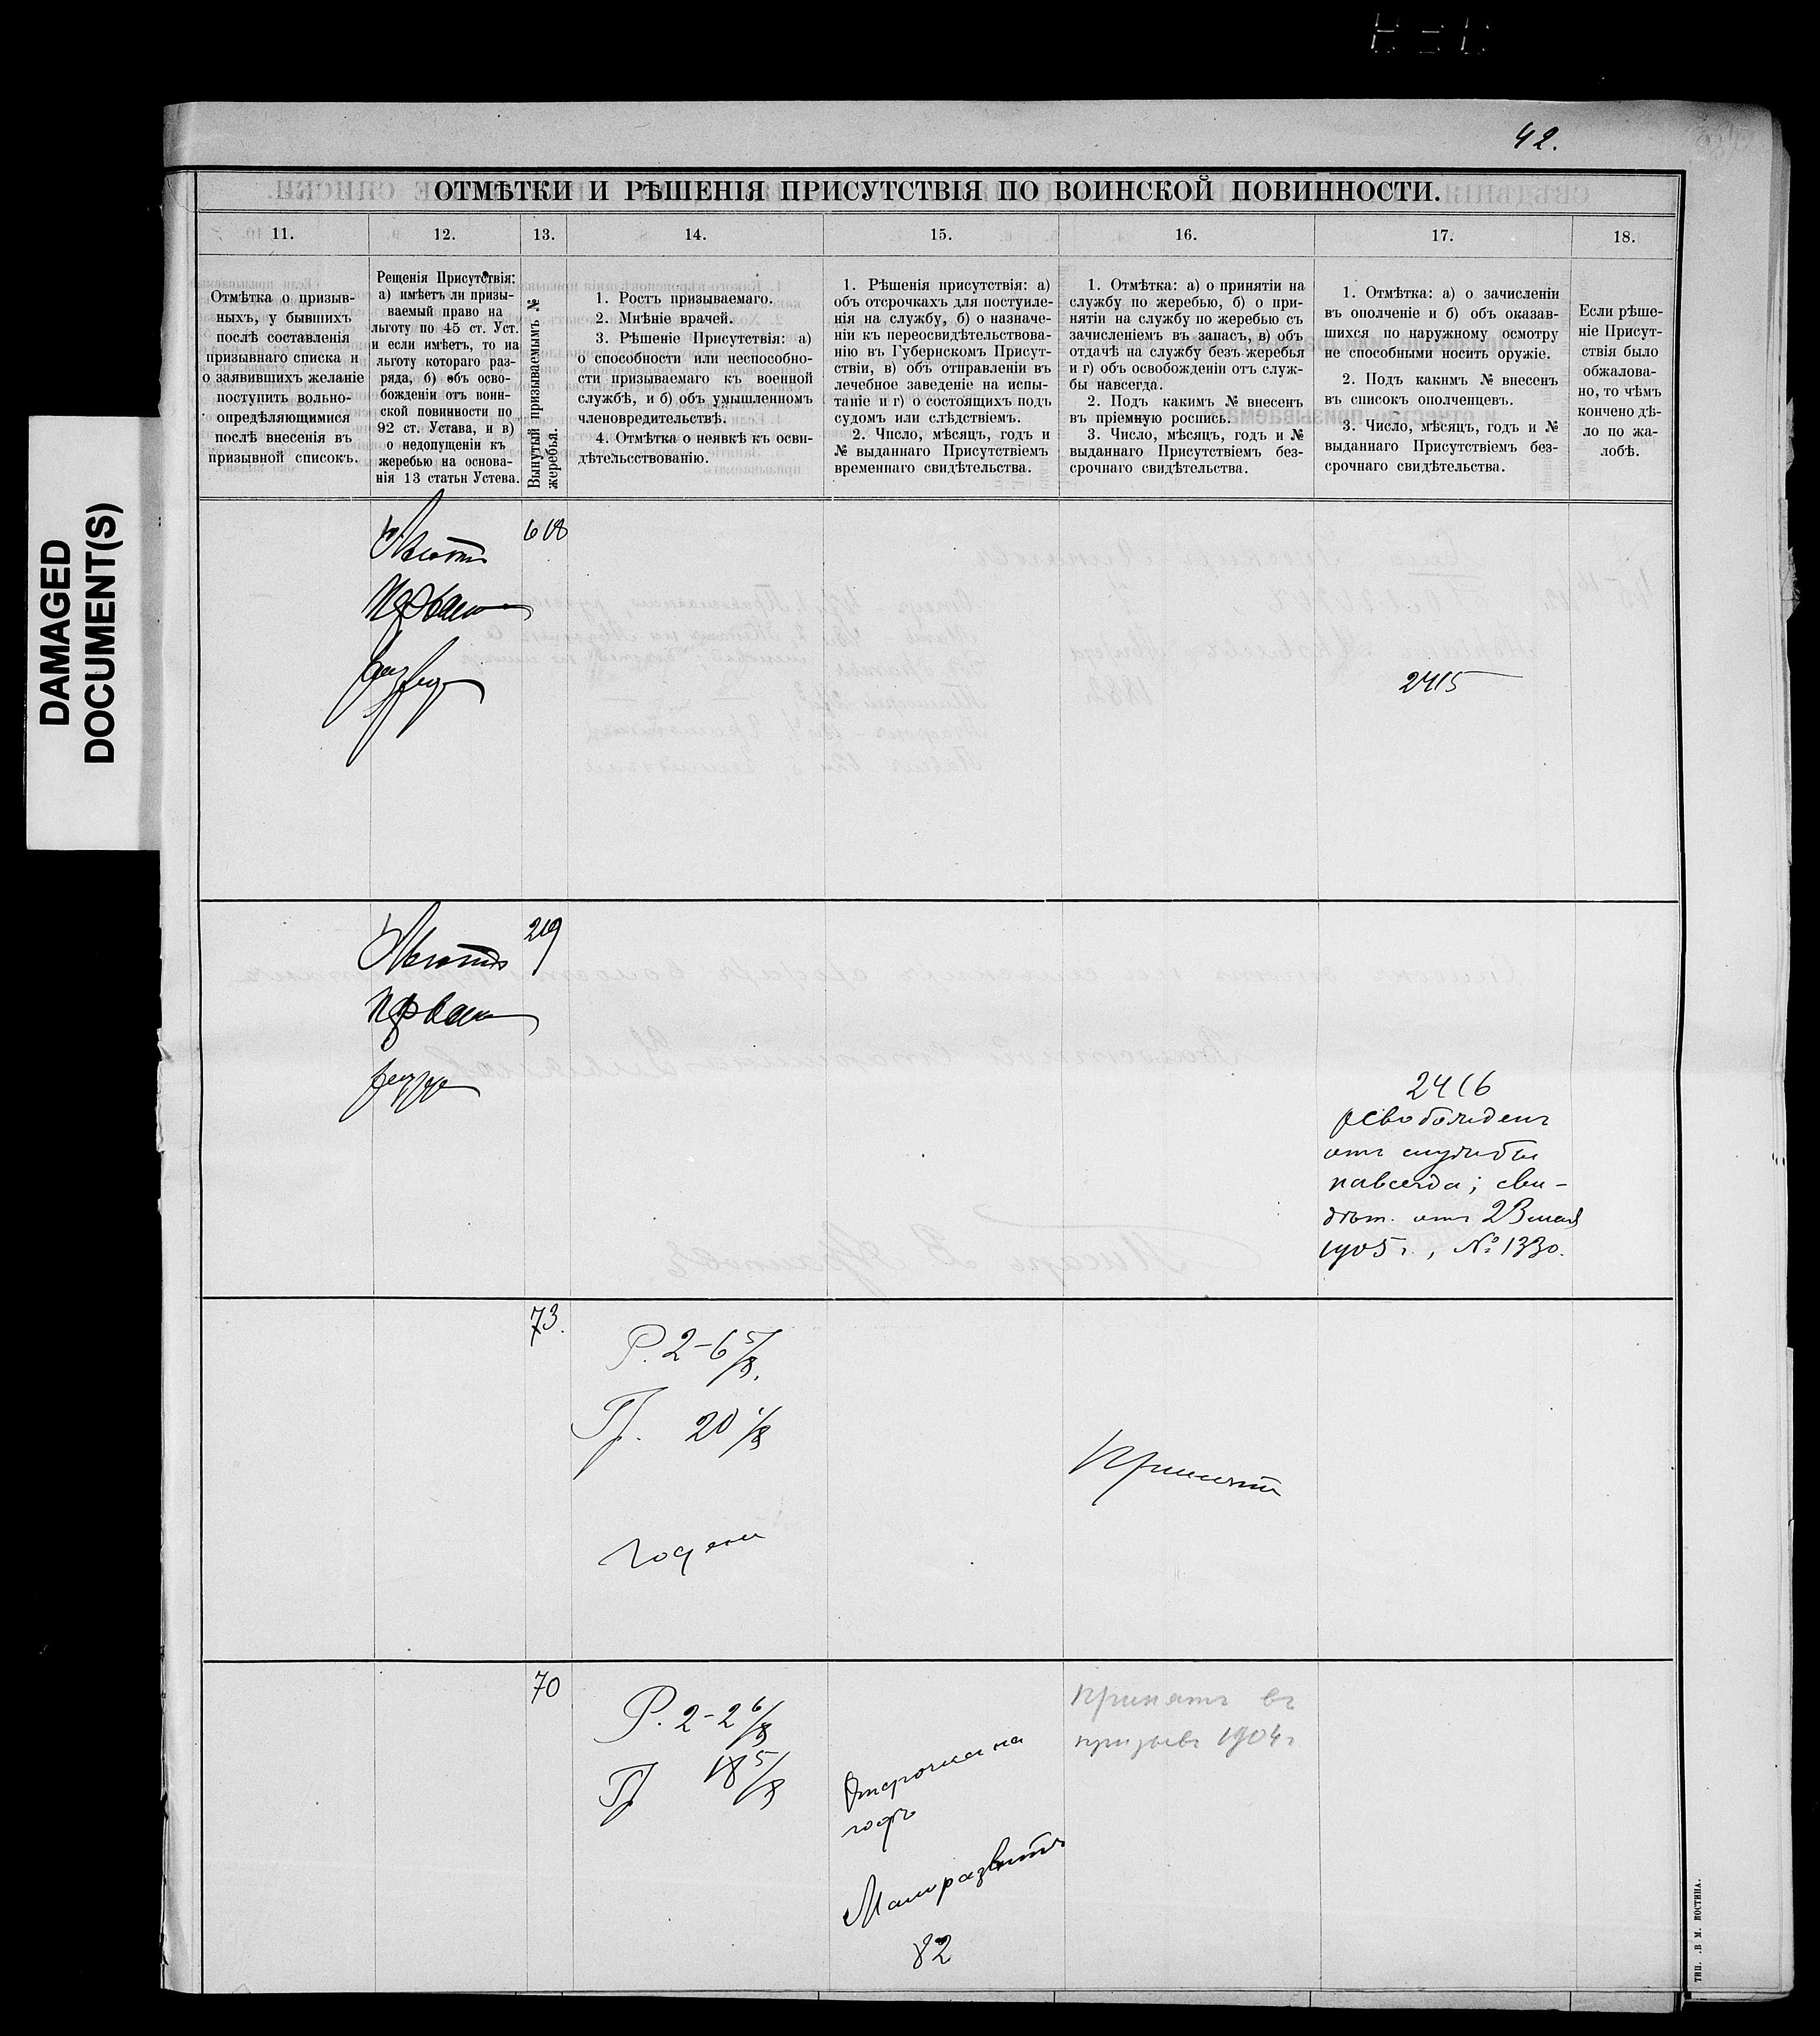 42.
DAMAGED
DOCUMENT(S)
ОТМѢТКИ И РѢШЕНІЯ ПРИСУТСТВІЯ ПО ВОИНСКОЙ ПОВИННОСТИ.
11.
12.
13.
14.
15.
16.
17.
18.
Отмѣтка о призыв-
ныхъ, у бывшихъ
послѣ составленія
призывнаго списка и
о заявившихъ желаніе
поступить вольно-
опредѣляющимися
послѣ внесенія въ
призывной списокъ.
Рещенія Присутствія:
а) имѣетъ ли призы-
ваемый право на
льготу по 45 ст. Уст.
и если имѣетъ, то на
льготу котораго раз-
ряда, б) объ осво-
божденіи отъ воин-
ской повинности по
92 ст. Устава, и в)
о недопущеніи къ
жеребью на основа-
нія 13 статьи Устева.
Вынутый призываемымъ №
жеребья.
1. Ростъ призываемаго.
2. Мнѣніе врачей.
3. Рѣшеніе Присутствія: а)
о способности или неспособно-
сти призываемаго къ военной
службѣ, и б) объ умышленномъ
членовредительствѣ.
4. Отмѣтка о неявкѣ къ осви-
дѣтельсствованію.
1. Рѣшенія присутствія: а)
объ отсрочкахъ для постуиле-
нія на службу, б) о назначе-
ніи къ переосвидѣтельствова-
нію въ Губернскомъ Присут-
ствіи, в) объ отправленіи въ
лечебное заведеніе на испы-
таніе и г) о состоящихъ подъ
судомъ или слѣдствіемъ.
2. Число, мѣсяцъ, годъ и
№ выданнаго Присутствіемъ
временнаго свидѣтельства.
1. Отмѣтка: а) о принятіи на
службу по жеребью, б) о при-
нятіи на службу по жеребью съ
зачисленіемъ въ запасъ, в) объ
отдачѣ на службу безъ жеребья
и г) объ освобожденіи отъ служ-
бы навсегда.
2. Подъ какимъ № внесенъ
въ пріемную роспись.
3. Число, мѣсяцъ, годъ и №
выданнаго Присутствіемъ без-
срочнаго свидѣтельства.
1. Отмѣтка: а) о зачисленіи
въ ополченіе и б) объ оказав-
шихся по наружному осмотру
не способными носить оружіе.
2. Подъ какимъ № внесенъ
въ списокъ ополченцевъ.
3. Число, мѣсяцъ, годъ и №
выданнаго Присутствіемъ без-
срочнаго свидѣтельства.
Если рѣше-
ніе Присут-
ствія было
обжалова-
но, то чѣмъ
кончено дѣ-
ло по жа-
лобѣ.
618
2415
219
2416
освобожденъ
отъ службы
навсегда; сви-
дѣт. отъ 23 мая
1905 г., № 1330.
73.
Р. 2-6 5/8.
Гр. 20 1/8
годенъ
Принятъ
70
Р. 2-2 6/8
Гр 18 5/8
Отсрочка на
годъ
Малоразвитъ
82
Принятъ въ
призывъ 1904 г
ТИП. .В М. КОСТИНА.